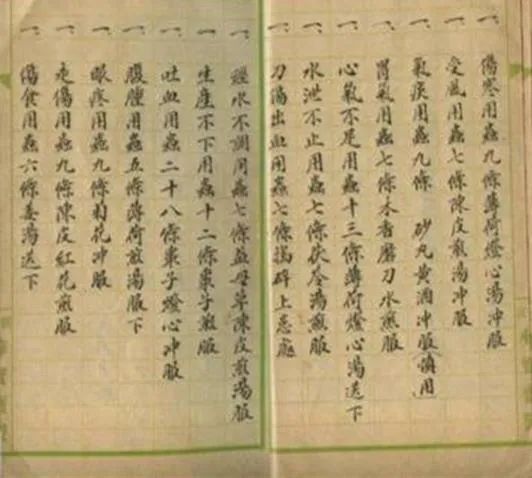 一、傷寒用蟲九條薄荷燈心湯冲服
一、受風用蟲七條陳皮煎湯冲服
一、氣痰用蟲九條 砂丸黄酒冲服(慎用)
一、胃氣用蟲七條木香磨刀水煎服
一、心氣不足用蟲十三條薄荷燈心湯送下
一、水泄不止用蟲七條茯苓湯煎服
一、刀傷出血用蟲七條搗碎上患處
一、經水不調用蟲七條益母草(陳皮煎湯服
一、生產不下用蟲十二條棗子煎服
一、吐血用蟲二十八條棗子燈心冲服
一、腹腫用蟲五條薄荷煎湯服下
一、眼疼用蟲九條菊花冲服
一、走傷用蟲九條陳皮紅花煎服
一、傷食用蟲六條姜湯送下